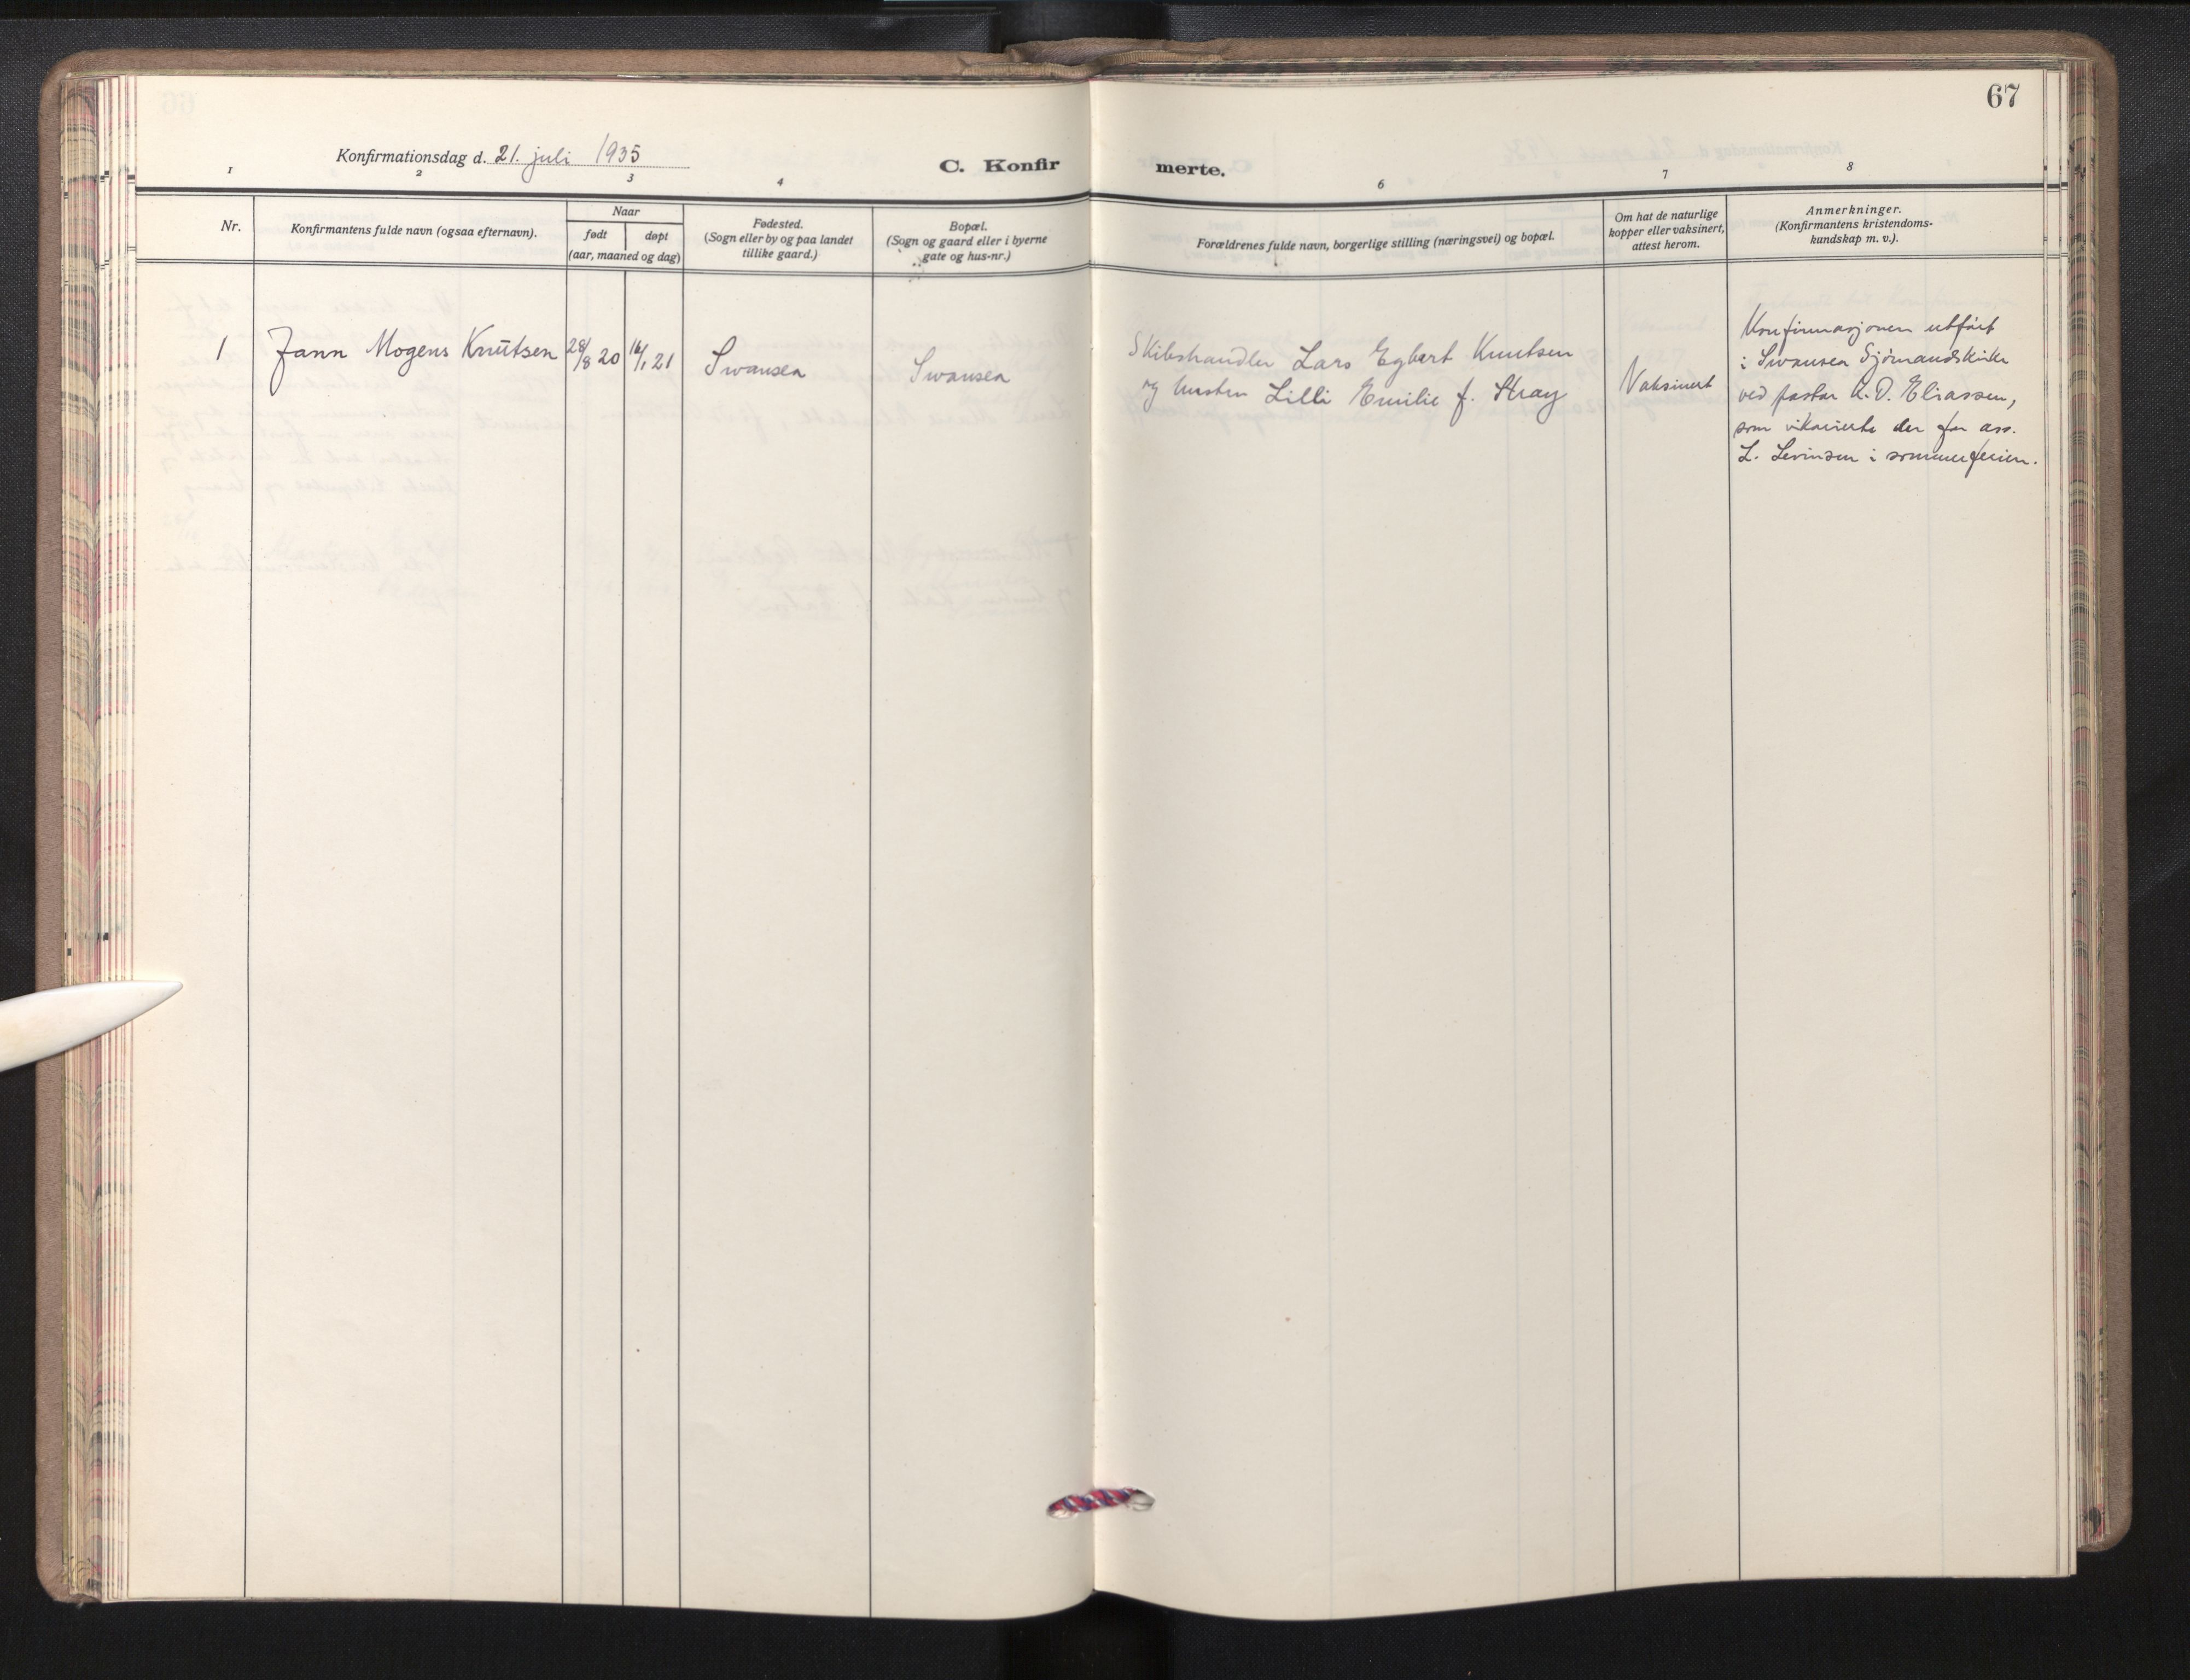 67
Konfirmationsdag d. 21. juli 1935
C. Konfir merte.
1 2 3 4 6 7 8
Nr.
Konfirmantens fulde navn (ogsaa efternavn).
Naar
født døpt
(aar, maaned og dag)
Fødested.
(Sogn eller by og paa landet
tillike gaard.)
Bopæl.
(Sogn og gaard eller i byerne
gate og hus-nr.)
Forældrenes fulde navn, borgerlige stilling (næringsvei) og bopæl.
Om hat de naturlige
kopper eller vaksinert,
attest herom.
Anmerkninger.
(Konfirmantens kristendoms-
kundskap m. v.).
1 Jann Mogens Knutsen 28/8 20 16/1 21 Swansea Swansea
Skibshandler Lars Egbert Knutsen
og hustru Lilli Emilie f. Stray
Vaksinert
Konfirmasjonen utført
i Swansea Sjømandskirke
ved pastor K. O. Eliassen,
som vikarierte der for ass.
L. Levinsen i sommerferien.